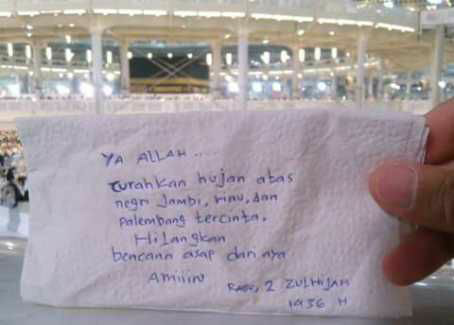 YA ALLAH ....
Turahkan hujan atas
negri Jambi, riau, dan
Palembang tercinta.
Hilangkan
bencana asap dari nya
Amiiin
Rabu, 2 ZULHIJAH
1436 H